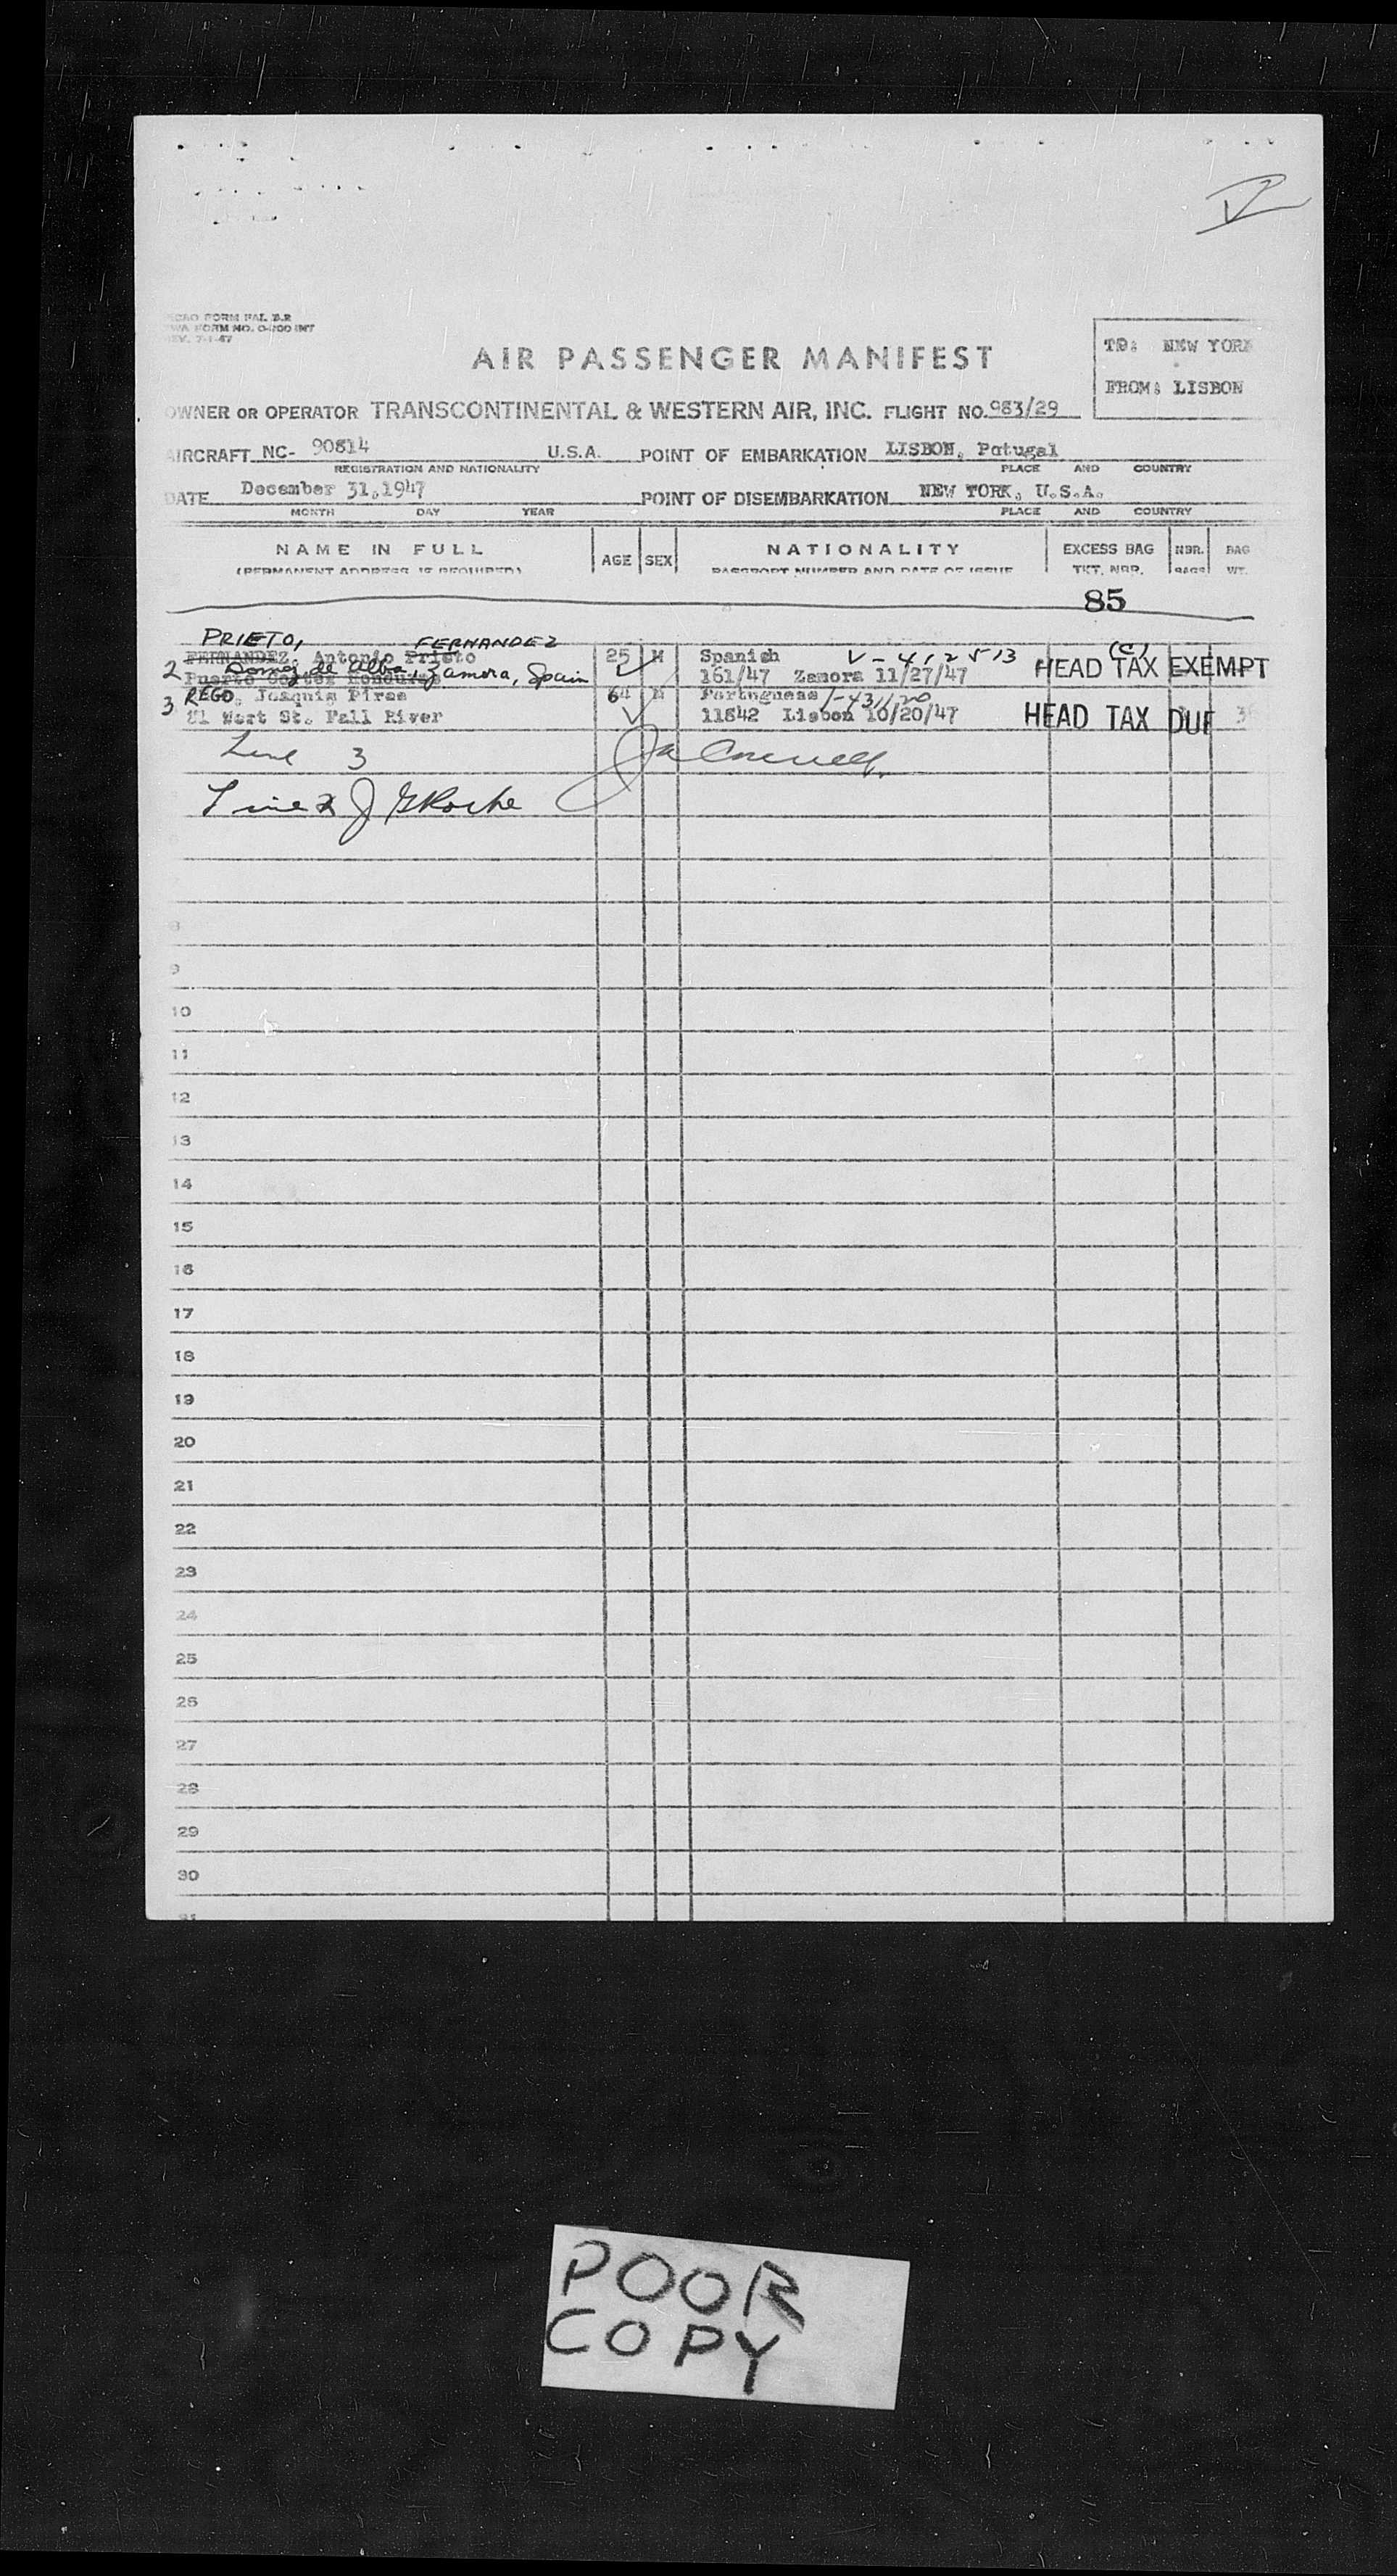 ICAO FORM PAL B.R
TWA FORM NO. O-200 INT
REV. 7-1-47
AIR PASSENGER MANIFEST
TO: NEW YORK
FROM: LISBON
OWNER OR OPERATOR TRANSCONTINENTAL & WESTERN AIR, INC. FLIGHT NO. 983/29
AIRCRAFT NC- 90814 U.S.A. POINT OF EMBARKATION LISBON, Potugal
REGISTRATION AND NATIONALITY PLACE AND COUNTRY
DATE December 31,1947 POINT OF DISEMBARKATION NEW YORK, U.S.A.
MONTH DAY YEAR PLACE AND COUNTRY
NAME IN FULL AGE SEX NATIONALITY EXCESS BAG NBR. BAG
(PERMANENT ADDRESS IS REQUIRED) PASSPORT NUMBER AND DATE OF ISSUE TKT. NBR. BAGS WT.
85
PRIETO, FERNANDEZ
FERNANDEZ, Antonio Prieto 25 M Spanish V-412513 (C)
2 de Alba, Zamora, Spain 161/47 Zamora 11/27/47 HEAD TAX EXEMPT
Puerto Cortes Honduras
3 REGO, Joaquim Pires 64 M Portuguese
81 West St. Fall River 11842 Lisbon 10/20/47 HEAD TAX DUE
Line 3
Line 2 J G Roche
8
9
10
11
12
13
14
15
16
17
18
19
20
21
22
23
24
25
26
27
28
29
30
31
POOR
COPY